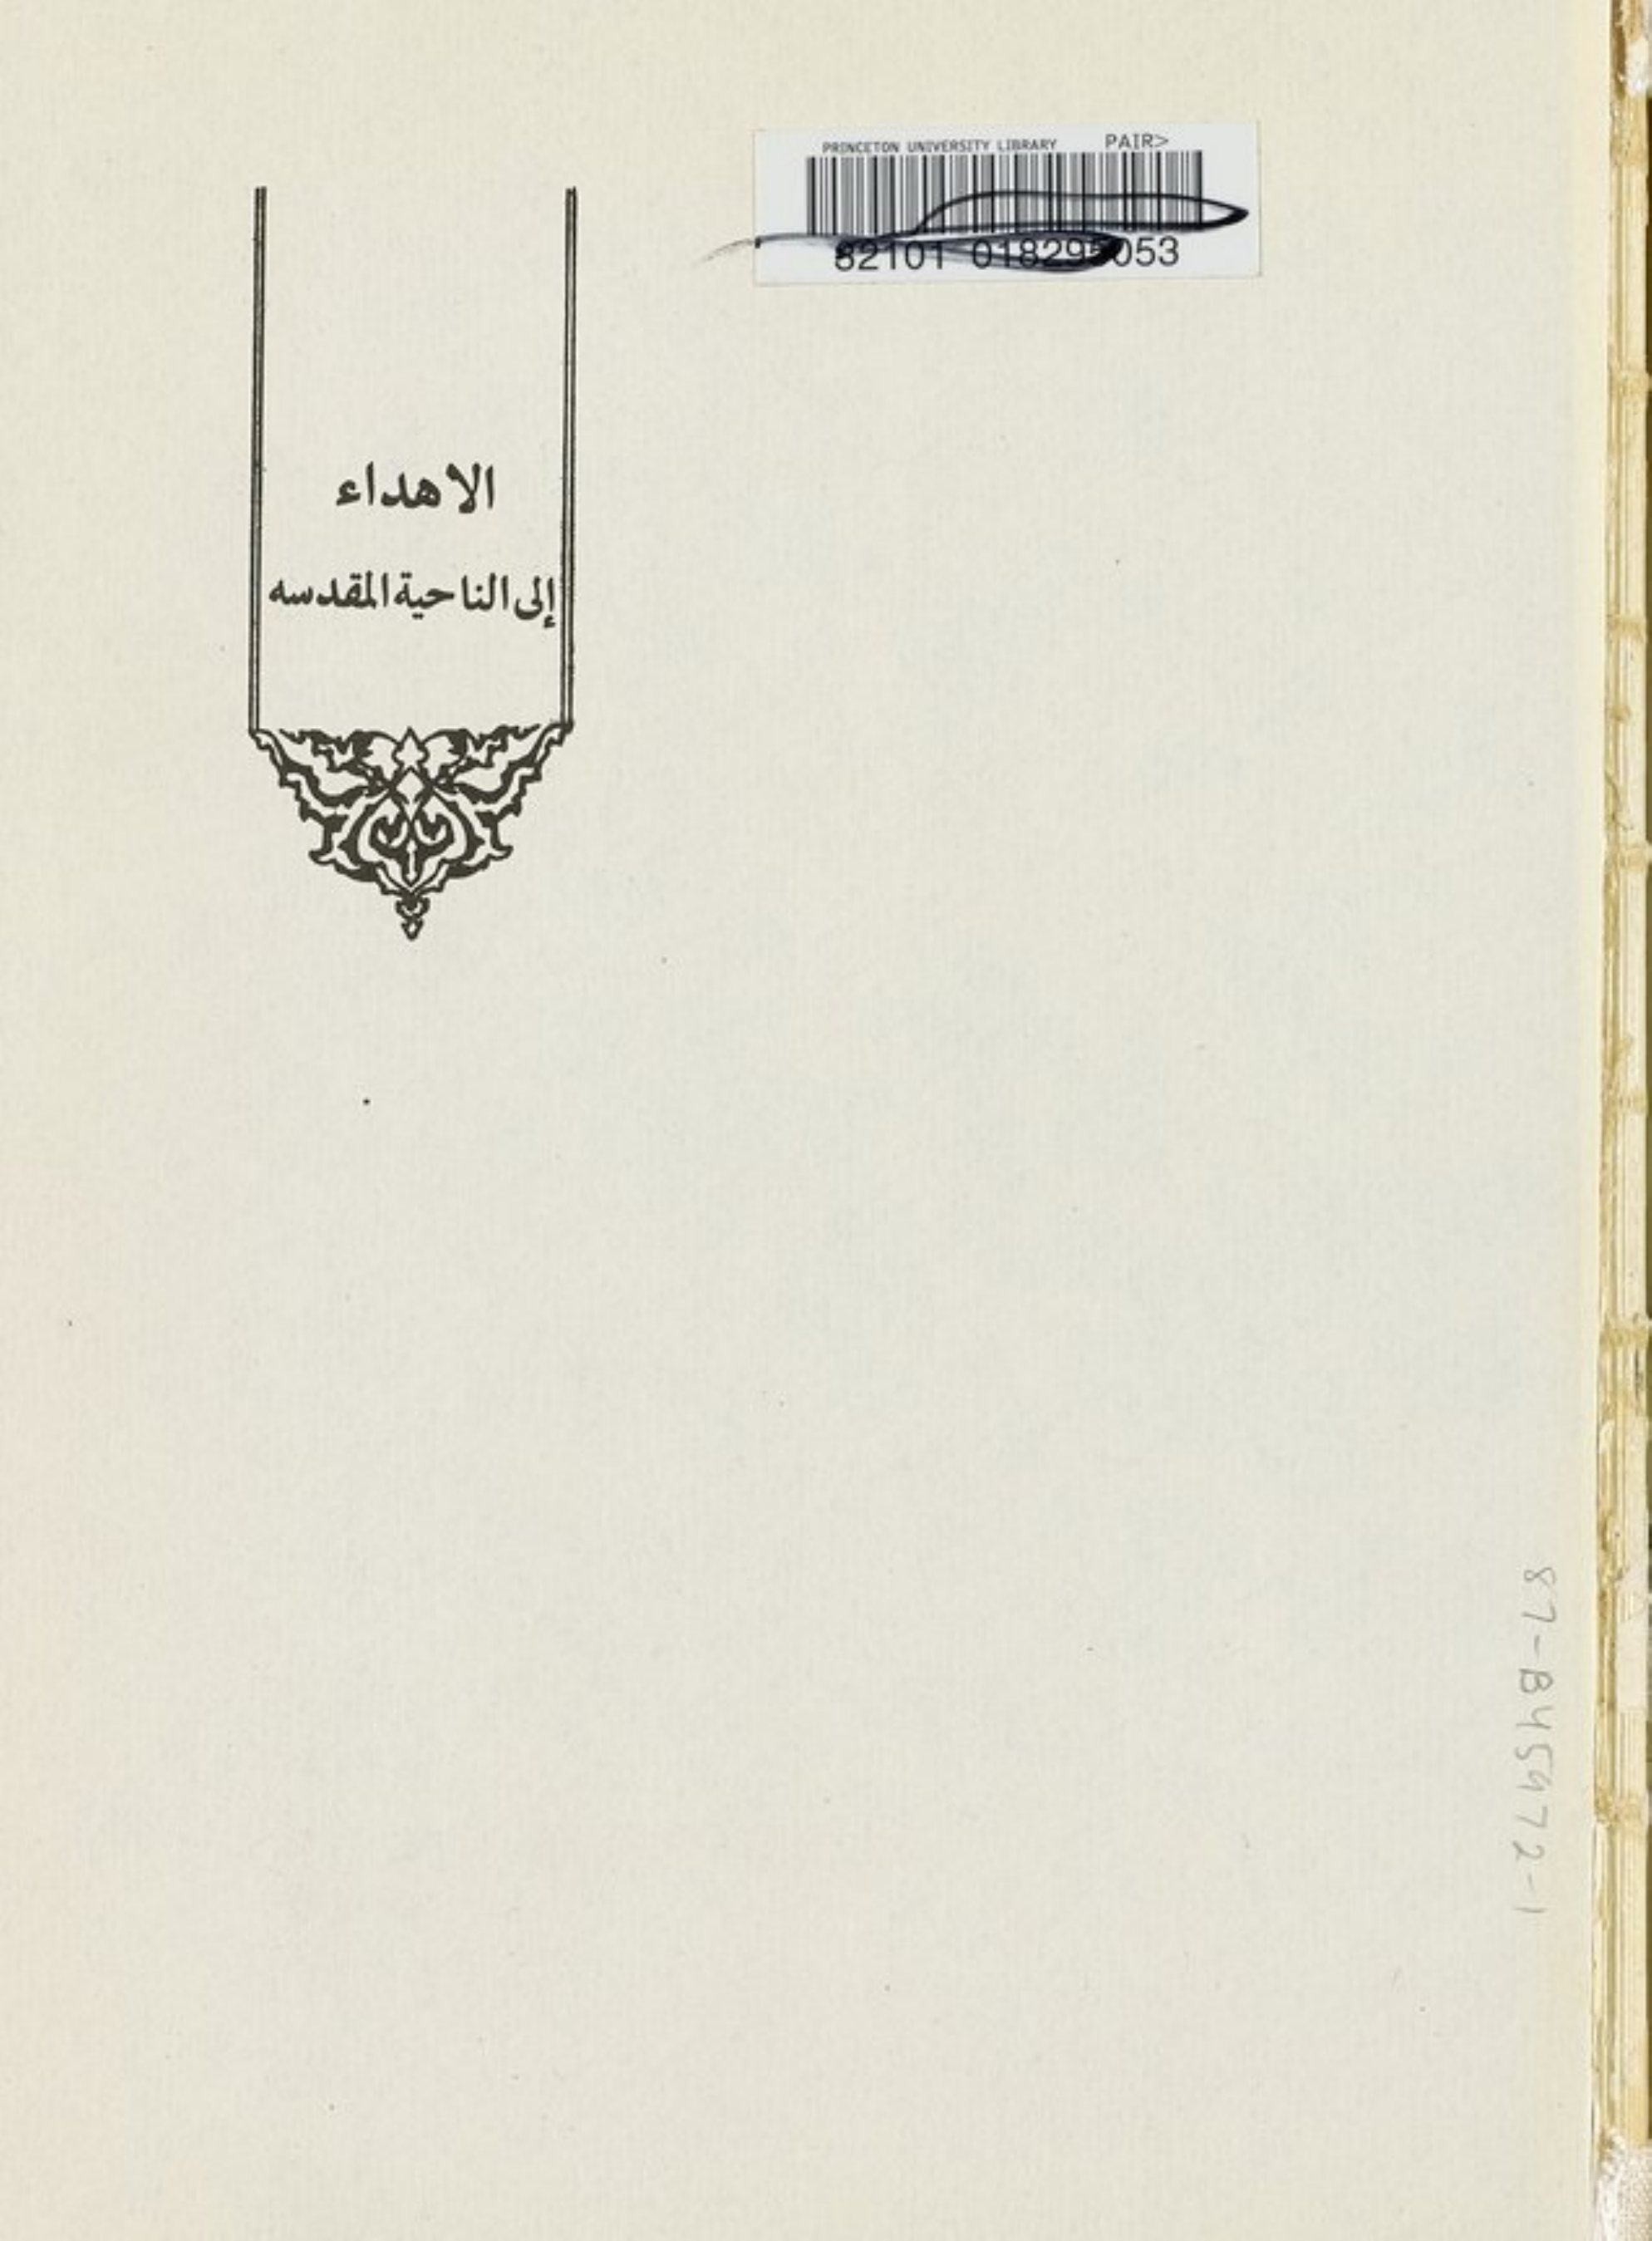 PRINCETON UNIVERSITY LIBRARY PAIR>
32101 018295053
الاهداء
إلى الناحية المقدسه
87-B45972-1